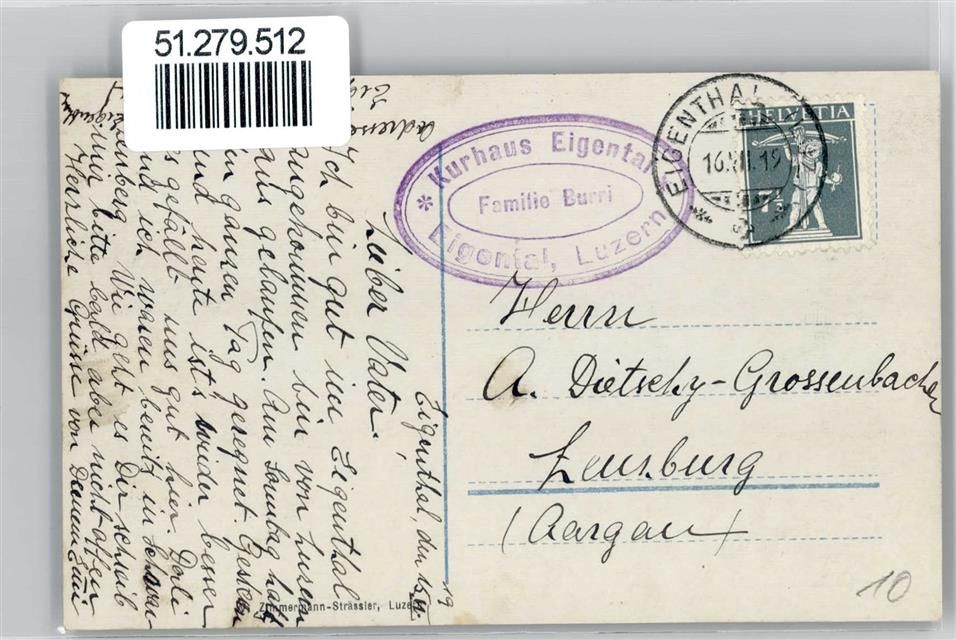 51.279.512
Kurhaus Eigental
Familie Burri
Eigental, Luzern
EIGENTHAL
HELVETIA
7½
Herrn
A. Dietschy-Grossenbacher
Lenzburg
(Aargau)
Eigenthal, den
19
Lieber Vater,
Ich bin gut im Eigenthal
angekommen bin von Luzern
aus gelaufen. Am Samstag hat
den ganzen Tag geregnet. Gestern
und heute ist's wieder besser
gefällt uns gut hier. Dorli
und ich waren bereits in
Wie geht es Dir schreib
mir bitte bald aber nicht offen
Herzliche Grüsse von Deinem
Adresse
Zimmermann-Strässler, Luzern
10